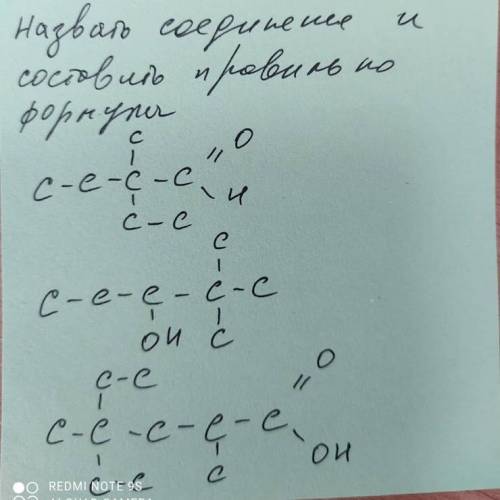 Назвать соединение и
составить правильно
формулы
C
C - C - C - C = O
H
C - C
C
C - C - C - C - C
OH C
C - C
C - C - C - C - C = O
OH
C C C
REDMI NOTE 9S